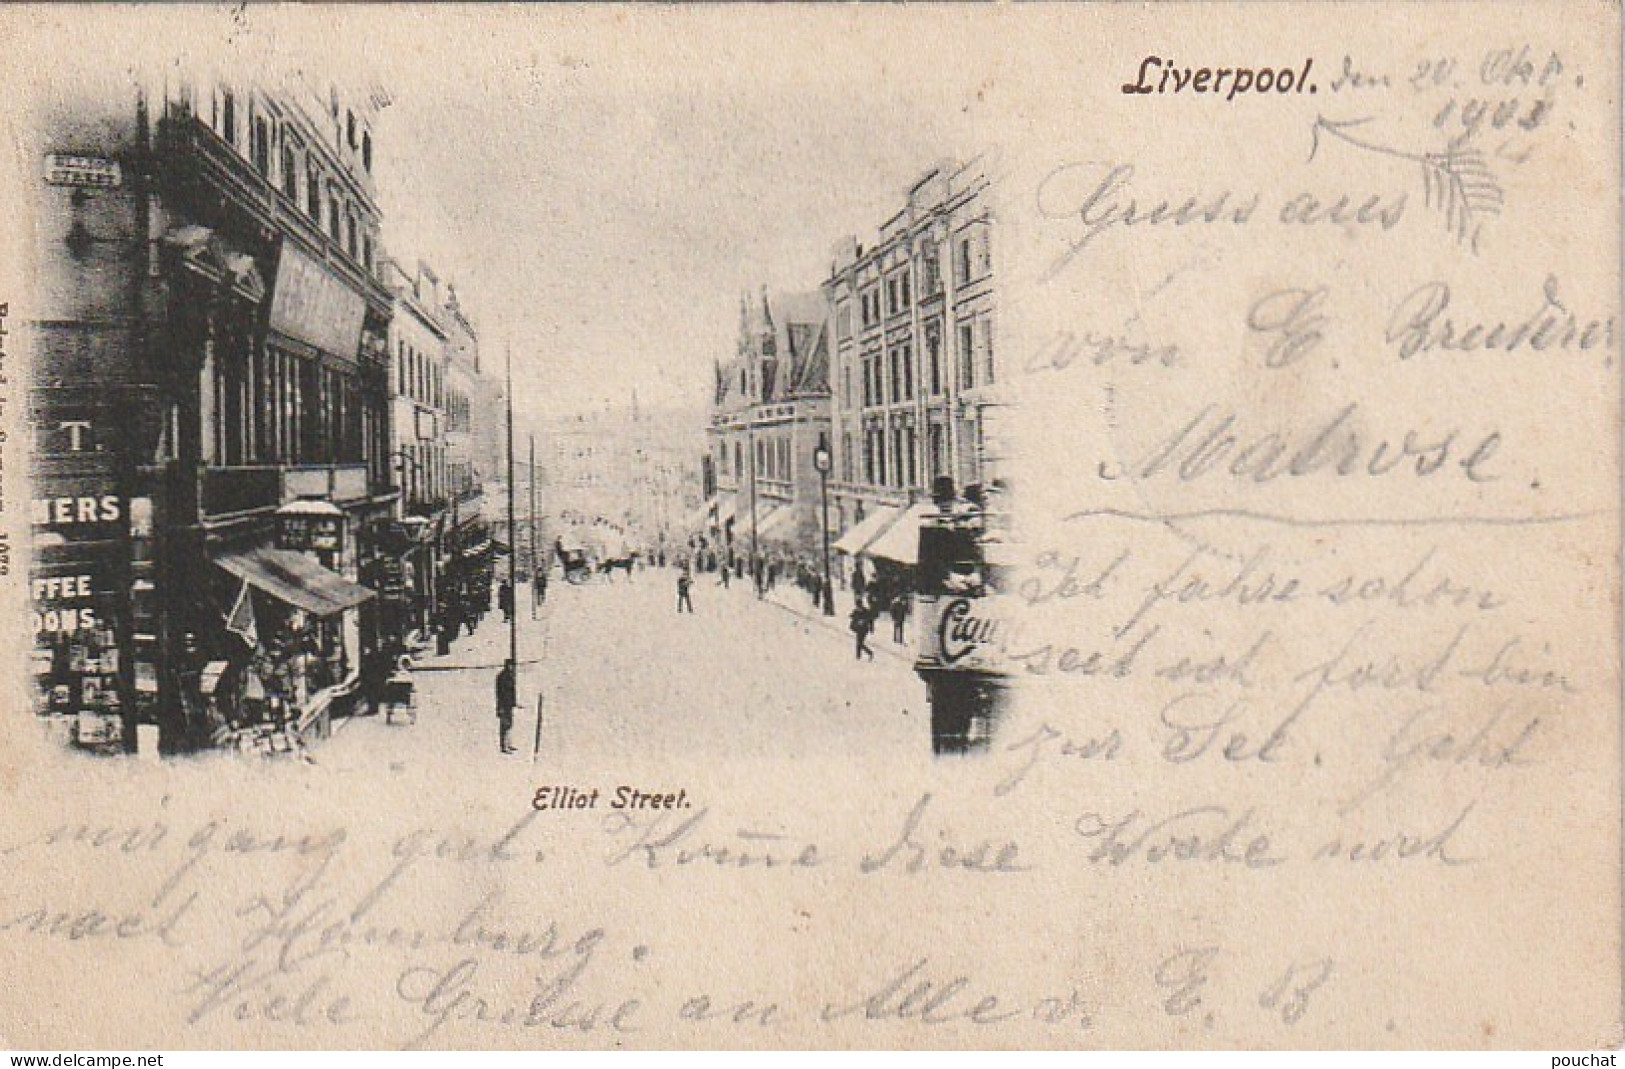 Liverpool. den 20. Okt.
1902.
Gruss aus
von E. Bruder
Matrose.
Ich fahre schon
seit ich fort bin
zur See. Geht
mir ganz gut. Kom̅e diese Woche noch
nach Hamburg.
Viele Grüsse an Alle v. E. B.
Elliot Street.
STREET
T.
NERS
FFEE
OOMS.
pouchat